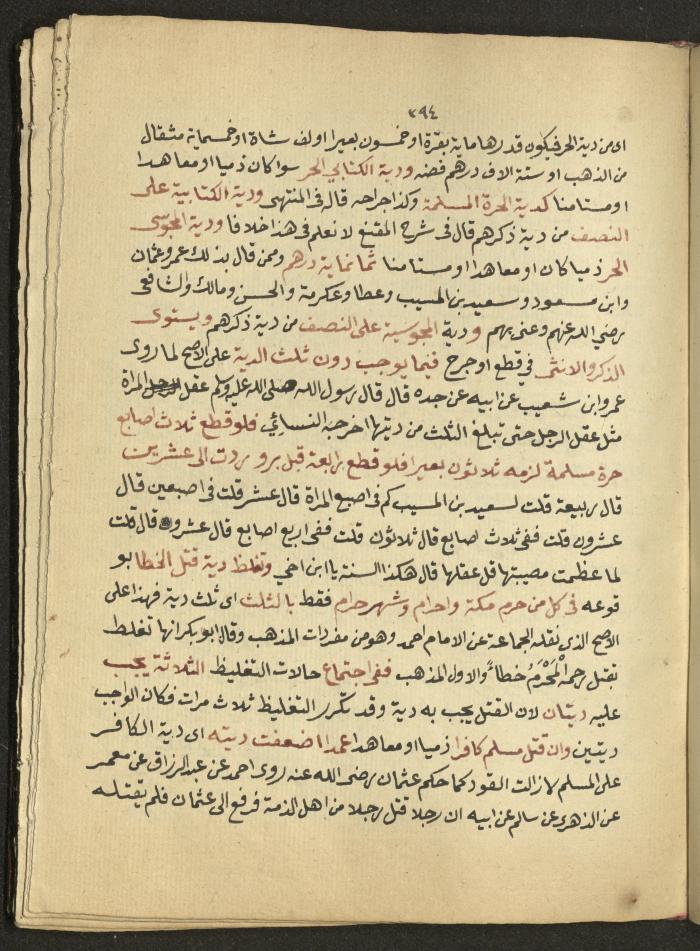 ٢٩٤
اى من دية الحر فيكون قدرها ماية بقرة او خمسون بعيرا او لف شاة او خمسماية مثقال
من الذهب او ستة الاف درهم فضه ودية الكتابي الحر سوا كان ذميا او معاهدا
او مستامنا كدية الحرة المسلمة وكذا جراحه قاله فى المنتهى ودية الكتابية على
النصف من دية ذكرهم قال فى شرح المقنع لا نعلم فى هذا خلافا ودية المجوسى
الحر ذميا كان او معاهدا او مستامنا ثمانماية درهم وممن قال بذلك عمر وعثمان
وابن مسعود وسعيد بن المسيب وعطا وعكرمة والحسن ومالك والشافعى
رضي الله عنهم وعنى بهم ودية المجوسية على النصف من دية ذكرهم ويستوى
الذكر والانثى في قطع او جرح فيما يوجب دون ثلث الدية على الاصح لما روى
عمر وابن شعيب عن ابيه عن جده قال قال رسول الله صلى الله عليه وسلم عقل المراة
مثل عقل الرجل حتى تبلغ الثلث من ديتها اخرجه النسائي فلو قطع ثلاث اصابع
حرة مسلمة لزمه ثلاثون بعيرا فلو قطع رابعة قبل برو ردت الى عشرين
قال ربيعة قلت لسعيد بن المسيب كم فى اصبع المراة قال عشر قلت فى اصبعين قال
عشرون قلت ففى ثلاث اصابع قال ثلاثون قلت ففى اربع اصابع قال عشرون قال قلت
لما عظمت مصيبتها قل عقلها قال هكذا السنة يا ابن اخي وتغلظ دية قتل الخطا بو
قوعه فى كل من حرم مكة واحرام وشهر حرام فقط بالثلث اى ثلث دية فهذا على
الاصح الذى نقله الجماعة عن الامام احمد وهو من مفردات المذهب وقال ابو بكر انها تغلظ
بقتل رحمه المَحْرَمُ خطاءً والاول المذهب ففى اجتماع حالات التغليظ الثلاثة يجب
عليه ديتان لان القتل يجب به دية وقد تكرر التغليظ ثلاث مرات فكان الواجب
ديتين وان قتل مسلم كافرا ذميا او معاهدا عمدا اضعفت ديته اى دية الكافر
على المسلم لازالت القود كما حكم عثمان رضى الله عنه روى احمد عن عبد الرزاق عن معمر
عن الزهرى عن سالم عن ابيه ان رجلا قتل رجلا من اهل الذمة فرفع الى عثمان فلم يقتله